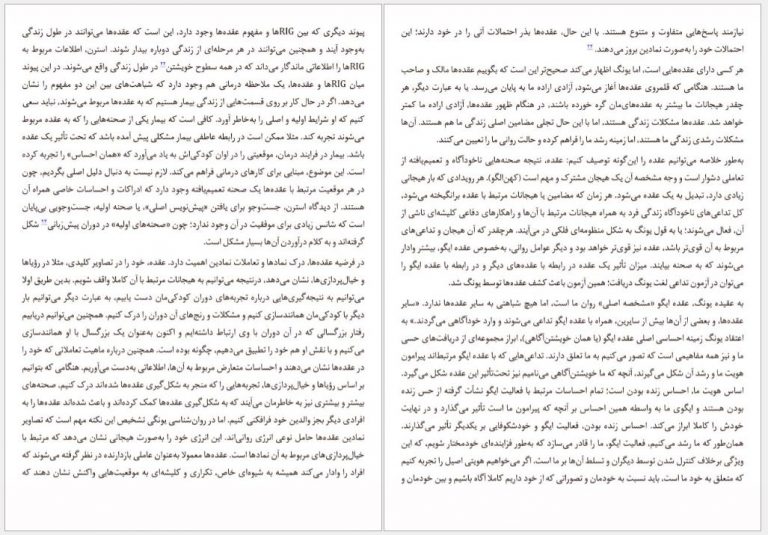 نیازمند پاسخ‌هایی متفاوت و متنوع هستند. با این حال، عقده‌ها بذر احتمالات آتی را در خود دارند؛ این
احتمالات خود را به‌صورت نمادین بروز می‌دهند.
هر کسی دارای عقده‌هایی است، اما یونگ اظهار می‌کند صحیح‌تر این است که بگوییم عقده‌ها مالک و صاحب
ما هستند. هنگامی که قلمروی عقده‌ها آغاز می‌شود، آزادی اراده ما به پایان می‌رسد. یا به عبارت دیگر، هر
چقدر هیجانات ما بیشتر به عقده‌های‌مان گره خورده باشند، در هنگام ظهور عقده‌ها، آزادی اراده ما کمتر
خواهد شد. عقده‌ها مشکلات زندگی هستند، اما با این حال تجلی مضامین اصلی زندگی ما هم هستند. آن‌ها
مشکلات رشدی زندگی ما هستند، اما زمینه رشد ما را فراهم کرده و حالت روانی ما را تعیین می‌کنند.
به‌طور خلاصه می‌توانیم عقده را این‌گونه توصیف کنیم: عقده، نتیجه صحنه‌هایی ناخودآگاه و تعمیم‌یافته از
تعاملی دشوار است و وجه مشخصه آن یک هیجان مشترک و مهم است (کهن‌الگو). هر رویدادی که بار هیجانی
زیادی دارد، تبدیل به یک عقده می‌شود. هر زمان که مضامین یا هیجانات مرتبط با عقده برانگیخته می‌شود،
کل تداعی‌های ناخودآگاه زندگی فرد به همراه هیجانات مرتبط با آن‌ها و راهکارهای دفاعی کلیشه‌ای ناشی از
آن، فعال می‌شوند؛ یا به قول یونگ به شکل منظومه‌ای فلکی در می‌آیند. هرچقدر که آن هیجان و تداعی‌های
مربوط به آن قوی‌تر باشد، عقده نیز قوی‌تر خواهد بود و دیگر عوامل روانی، به‌خصوص عقده ایگو، بیشتر وادار
می‌شوند که به صحنه بیایند. میزان تأثیر یک عقده در رابطه با عقده‌های دیگر و در رابطه با عقده ایگو را
می‌توان در آزمون تداعی لغت یونگ دریافت؛ همین آزمون باعث کشف عقده‌ها توسط یونگ شد.
به عقیده یونگ، عقده ایگو «مشخصه اصلی» روان ما است، اما هیچ شباهتی به سایر عقده‌ها ندارد. «سایر
عقده‌ها، و بعضی از آن‌ها بیش از سایرین، همراه با عقده ایگو تداعی می‌شوند و وارد خودآگاهی می‌گردند.» به
اعتقاد یونگ زمینه احساسی اصلی عقده ایگو (یا همان خویشتن‌آگاهی)، ابراز مجموعه‌ای از دریافت‌های حسی
ما و نیز همه مفاهیمی است که تصور می‌کنیم به ما تعلق دارند. تداعی‌هایی که با عقده ایگو مرتبط‌اند پیرامون
هویت ما و رشد آن شکل می‌گیرند، آنچه که ما خویشتن‌آگاهی می‌نامیم نیز تحت‌تأثیر این عقده شکل می‌گیرد.
اساس هویت ما، احساس زنده بودن است؛ تمام احساسات مرتبط با فعالیت ایگو نشأت گرفته از حس زنده
بودن هستند و ایگوی ما به واسطه همین احساس بر آنچه که پیرامون ما است تأثیر می‌گذارد و در نهایت
خودش را کاملا ابراز می‌کند. احساس زنده بودن، فعالیت ایگو و خودشکوفایی بر یکدیگر تأثیر می‌گذارند.
همان‌طور که ما رشد می‌کنیم، فعالیت ایگو، ما را قادر می‌سازد که به‌طور فزاینده‌ای خودمختار شویم، که این
ویژگی برخلاف کنترل شدن توسط دیگران و تسلط آن‌ها بر ما است. اگر می‌خواهیم هویتی اصیل را تجربه کنیم
که متعلق به خود ما است، باید نسبت به خودمان و تصوراتی که از خود داریم کاملا آگاه باشیم و بین خودمان و
پیوند دیگری که بین RIGها و مفهوم عقده‌ها وجود دارد، این است که عقده‌ها می‌توانند در طول زندگی
به‌وجود آیند و همچنین می‌توانند در هر مرحله‌ای از زندگی دوباره بیدار شوند. استرن، اطلاعات مربوط به
RIGها را اطلاعاتی ماندگار می‌داند که در همه سطوح خویشتن در طول زندگی واقع می‌شوند. در این پیوند
میان RIGها و عقده‌ها، یک ملاحظه درمانی هم وجود دارد که شباهت‌های بین این دو مفهوم را نشان
می‌دهد. اگر در حال کار بر روی قسمت‌هایی از زندگی بیمار هستیم که به عقده‌ها مربوط می‌شوند، نباید سعی
کنیم که او شرایط اولیه و اصلی را به‌خاطر آورد. کافی است که بیمار یکی از صحنه‌هایی را که به عقده مربوط
می‌شوند تجربه کند. مثلا ممکن است در رابطه عاطفی بیمار مشکلی پیش آمده باشد که تحت تأثیر یک عقده
باشد. بیمار در فرایند درمان، موقعیتی را در اوان کودکی‌اش به یاد می‌آورد که «همان احساس» را تجربه کرده
است. این موضوع، مبنایی برای کارهای درمانی فراهم می‌کند. لازم نیست به دنبال دلیل اصلی بگردیم، چون
در هر موقعیت مرتبط با عقده‌ها یک صحنه تعمیم‌یافته وجود دارد که ادراکات و احساسات خاصی همراه آن
هستند. از دیدگاه استرن، جست‌وجو برای یافتن «پیش‌نویس اصلی»، یا صحنه اولیه، جست‌وجویی بی‌پایان
است که شانس زیادی برای موفقیت در آن وجود ندارد؛ چون «صحنه‌های اولیه» در دوران پیش‌زبانی شکل
گرفته‌اند و به کلام درآوردن آن‌ها بسیار مشکل است.
در فرضیه عقده‌ها، درک نمادها و تعاملات نمادین اهمیت دارد. عقده، خود را در تصاویر کلیدی، مثلا در رؤیاها
و خیال‌پردازی‌ها، نشان می‌دهد، درنتیجه می‌توانیم به هیجانات مرتبط با آن کاملا واقف شویم. بدین طریق اولا
می‌توانیم به نتیجه‌گیری‌هایی درباره تجربه‌های دوران کودکی‌مان دست یابیم، به عبارت دیگر می‌توانیم بار
دیگر با کودکی‌مان همانندسازی کنیم و مشکلات و رنج‌های آن دوران را درک کنیم. همچنین می‌توانیم دریابیم
رفتار بزرگسالی که در آن دوران با وی ارتباط داشته‌ایم و اکنون به‌عنوان یک بزرگسال با او همانندسازی
می‌کنیم و با نقش او هم خود را تطبیق می‌دهیم، چگونه بوده است. همچنین درباره ماهیت تعاملاتی که خود را
در عقده‌ها نشان می‌دهند و احساسات متعارض مربوط به آن‌ها، اطلاعاتی به‌دست می‌آوریم. هنگامی که بتوانیم
بر اساس رؤیاها و خیال‌پردازی‌ها، تجربه‌هایی را که منجر به شکل‌گیری عقده‌ها شده‌اند درک کنیم، صحنه‌های
بیشتر و بیشتری نیز به خاطرمان می‌آیند که به شکل‌گیری عقده‌ها کمک کرده‌اند و باعث شده‌اند عقده‌ها را به
افرادی دیگر بجز والدین خود فرافکنی کنیم. اما در روان‌شناسی یونگی تشخیص این نکته مهم است که تصاویر
نمادین عقده‌ها حامل نوعی انرژی روانی‌اند. این انرژی خود را به‌صورت هیجانی نشان می‌دهد که مرتبط با
خیال‌پردازی‌های مربوط به آن نمادها است. عقده‌ها معمولا به‌عنوان عاملی بازدارنده در نظر گرفته می‌شوند که
افراد را وادار می‌کند همیشه به شیوه‌ای خاص، تکراری و کلیشه‌ای به موقعیت‌هایی واکنش نشان دهند که